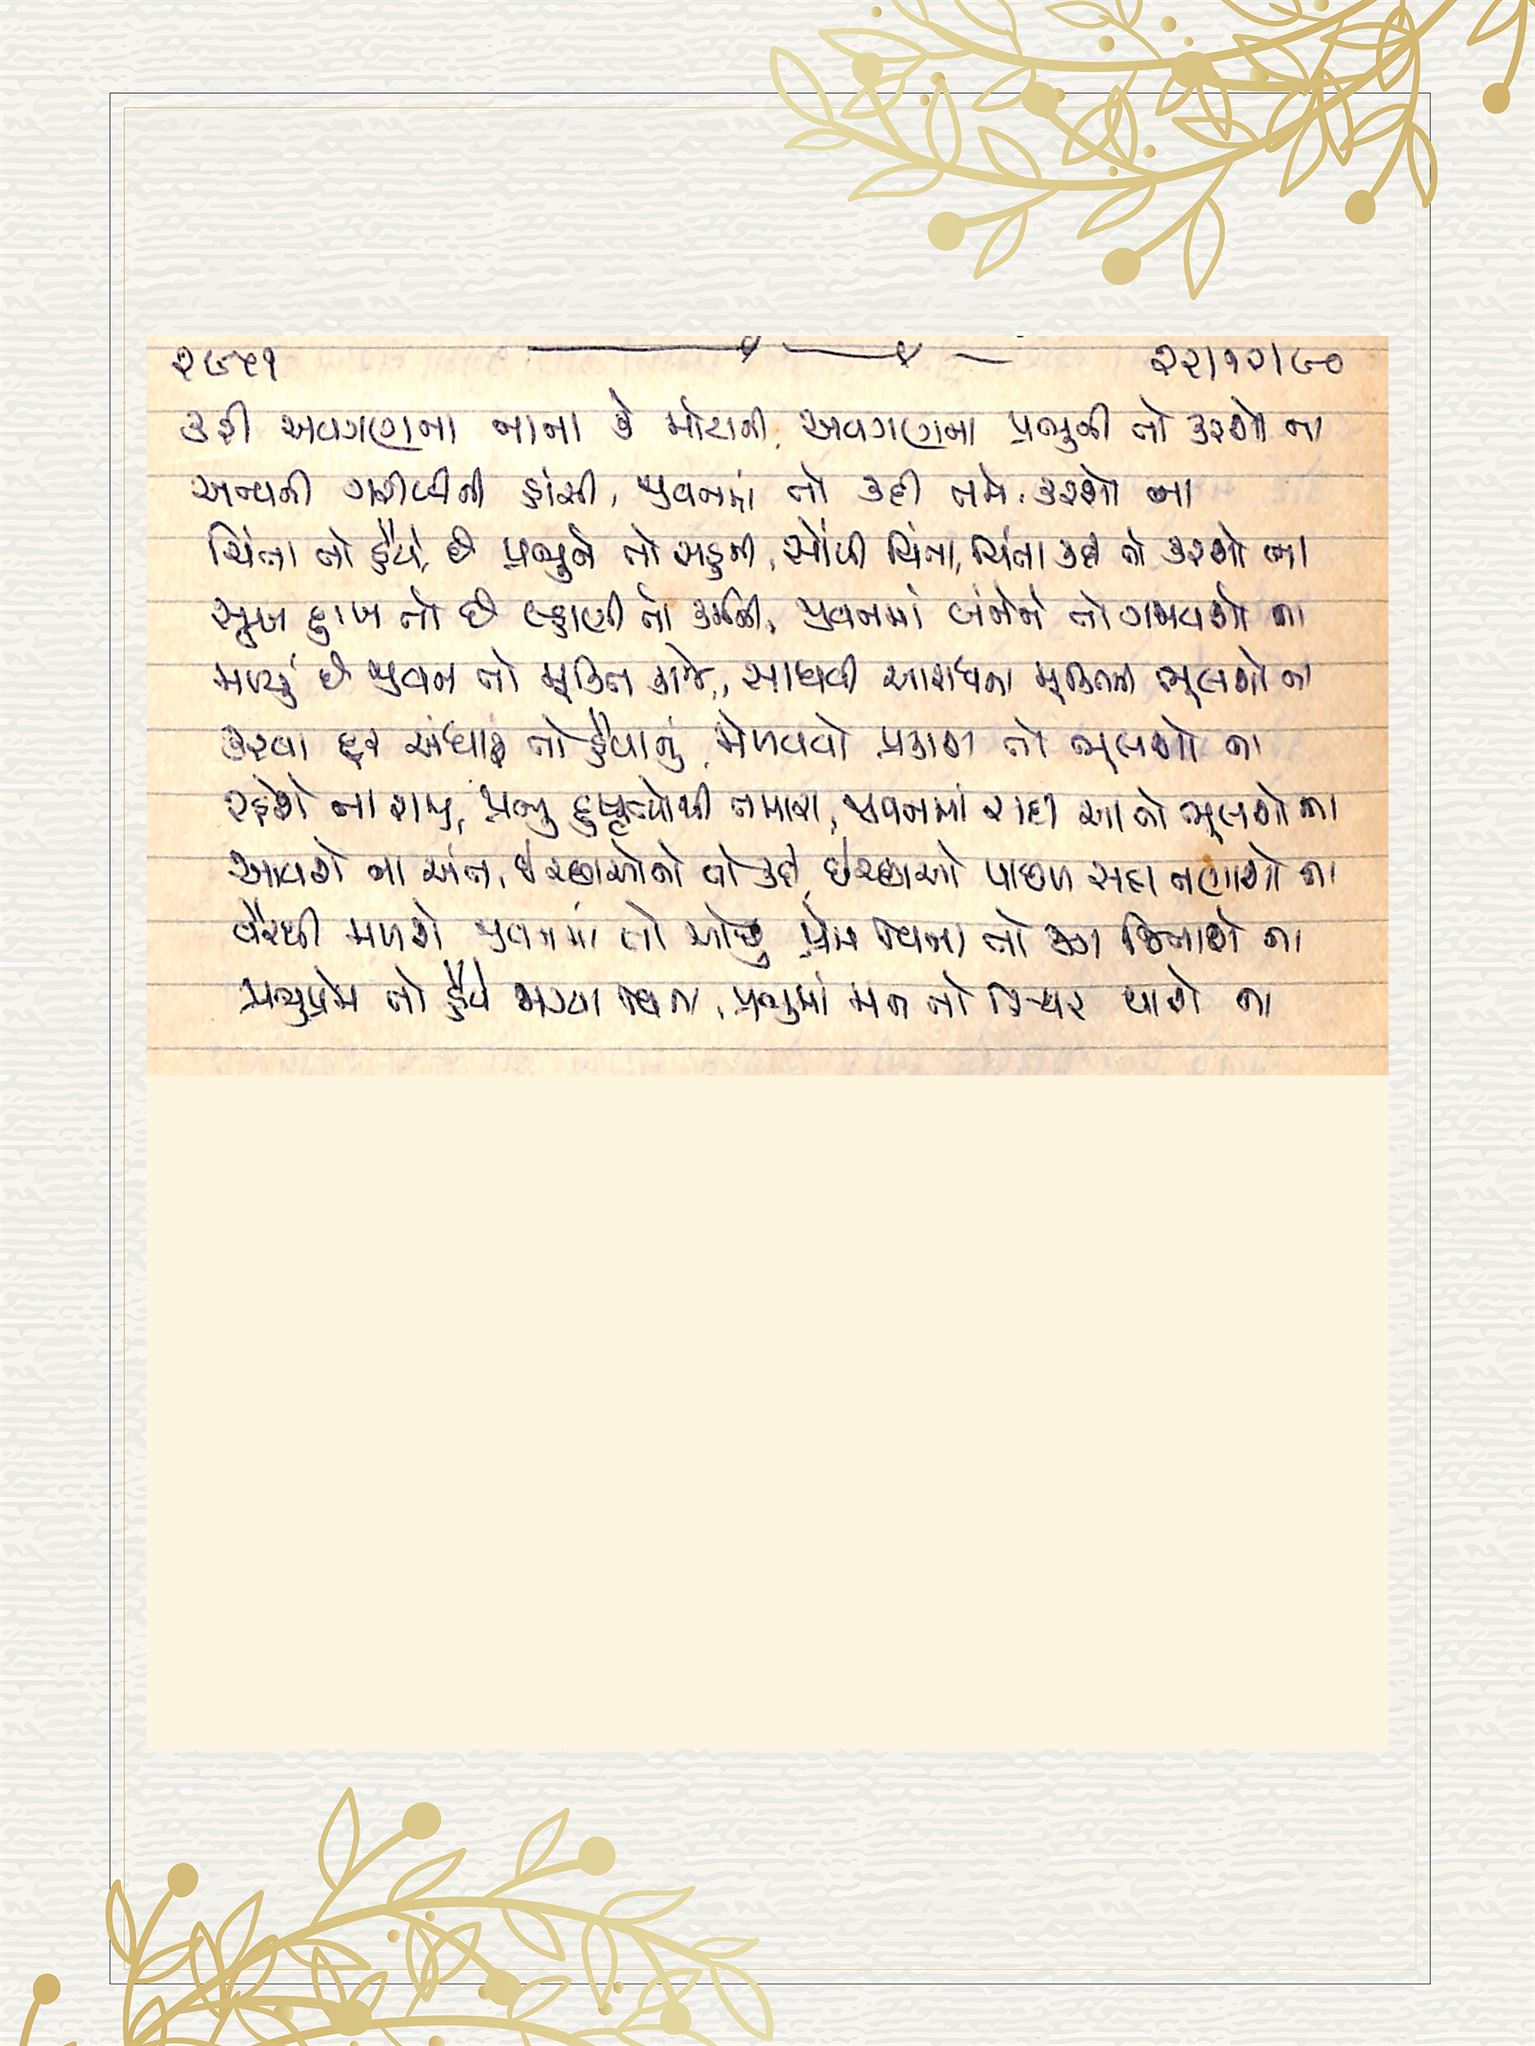 ૨૭૫૧ ૨૨/૧૨/૯૦
કરી અવગણના નાના કે મોટાની, અવગણના પ્રભુની તો કરશો ના
અન્યની ગરીબીની હાંસી, જીવનમાં તો કદી તમે કરશો ના
ચિંતા તો હૈયે, છે પ્રભુને તો સહુની, સોંપી ચિંતા, ચિંતા કોઈ તો કરશો ના
સુખ દુઃખ તો છે લ્હાણી તો કર્મની, જીવનમાં બંનેને તો ગભરાવશો ના
મળ્યું છે જીવન તો મુક્તિ કાજે, સાધવી આરાધના મુક્તિની ભૂલશો ના
કરવા દૂર અંધારું તો હૈયાનું, મેળવવો પ્રકાશ તો ભૂલશો ના
રહેશે ના રાજી, પ્રભુ દુષ્કૃત્યોથી તમારા, જીવનમાં સદા આ તો ભૂલશો ના
આવશે ના અંત, ઇચ્છાઓનો તો કોઈ, ઇચ્છાઓ પાછળ સદા તણાશો ના
વેરથી મળશે જીવનમાં તો ઓછું, પ્રેમ વિના તો જગ જિતાશે ના
પ્રભુપ્રેમ તો હૈયે ભર્યા વિના, પ્રભુમાં મન તો સ્થિર થાશે ના